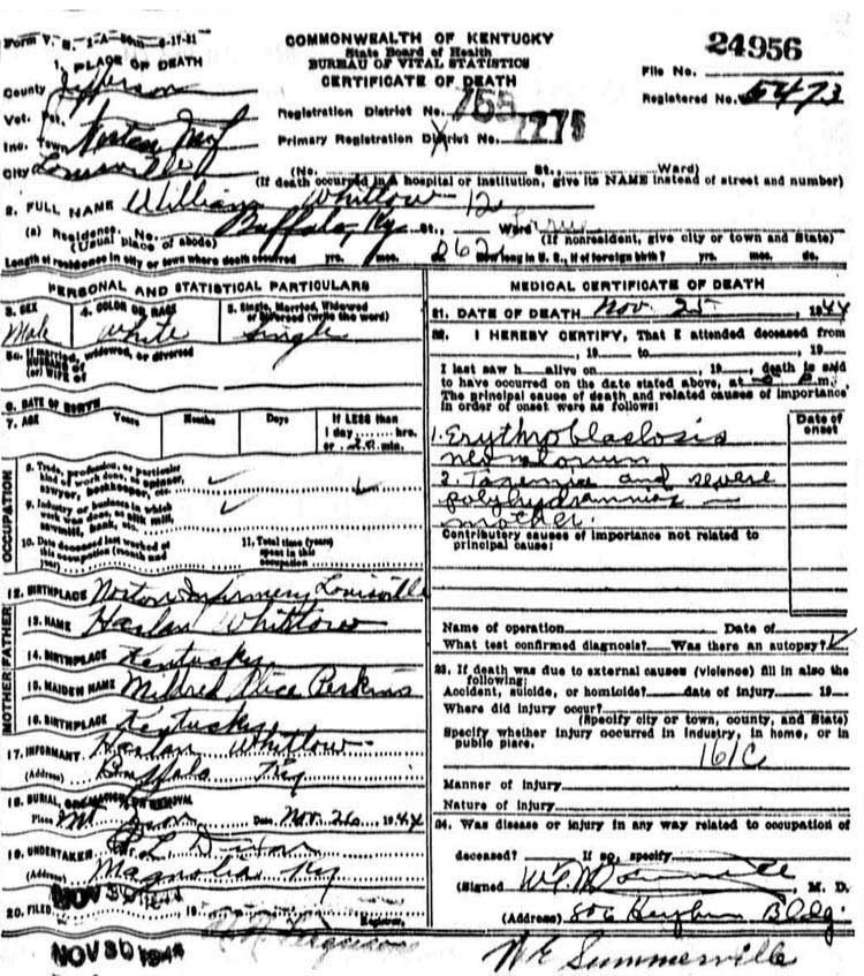 Form V. S. 1-A
COMMONWEALTH OF KENTUCKY
State Board of Health
BUREAU OF VITAL STATISTICS
CERTIFICATE OF DEATH
24956
File No.
Registered No. 5473
1. PLACE OF DEATH
County Jefferson
Vot. Pct.
Inc. Town Norton Inf
City Louisville
Registration District No. 755
Primary Registration District No. 7275
(No. St., Ward)
(If death occurred in a hospital or institution, give its NAME instead of street and number)
2. FULL NAME William Whitlow
(a) Residence. No. Buffalo, Ky. St., Ward
(Usual place of abode)
(If nonresident, give city or town and State)
Length of residence in city or town where death occurred yrs. mos. How long in U. S., if of foreign birth? yrs. mos. ds.
PERSONAL AND STATISTICAL PARTICULARS
3. SEX
Male
4. COLOR OR RACE
White
5. Single, Married, Widowed
or Divorced (write the word)
Single
5a. If married, widowed, or divorced
HUSBAND of
(or) WIFE of
6. DATE OF BIRTH
7. AGE Years Months Days If LESS than
1 day ........ hrs.
or 20 min.
OCCUPATION
8. Trade, profession, or particular
kind of work done, as spinner,
sawyer, bookkeeper, etc.
9. Industry or business in which
work was done, as silk mill,
sawmill, bank, etc.
10. Date deceased last worked at
this occupation (month and
year)
11. Total time (years)
spent in this
occupation
12. BIRTHPLACE Norton Infirmery Louisville
FATHER
13. NAME Harlan Whitlow
14. BIRTHPLACE Kentucky
MOTHER
15. MAIDEN NAME Mildred Alice Perkins
16. BIRTHPLACE Kentucky
17. INFORMANT Harlan Whitlow
(Address) Buffalo Ky
18. BURIAL, CREMATION, OR REMOVAL
Place Mt Date Nov. 26 1944
19. UNDERTAKER Dixon
(Address) Magnolia Ky
20. FILED 19
Registrar.
NOV 30 1944
MEDICAL CERTIFICATE OF DEATH
21. DATE OF DEATH Nov. 25 , 1944
22. I HEREBY CERTIFY, That I attended deceased from
, 19 to , 19
I last saw h alive on , 19 , death is said
to have occurred on the date stated above, at m.
The principal cause of death and related causes of importance
in order of onset were as follows:
Date of
onset
1. Erythroblastosis
neonatorum
2. Toxemia and severe
polyhydramnios —
mother.
Contributory causes of importance not related to
principal cause:
Name of operation Date of
What test confirmed diagnosis? Was there an autopsy?
23. If death was due to external causes (violence) fill in also the
following:
Accident, suicide, or homicide? date of injury 19
Where did injury occur?
(Specify city or town, county, and State)
Specify whether injury occurred in industry, in home, or in
public place.
161C
Manner of injury
Nature of injury
24. Was disease or injury in any way related to occupation of
deceased? If so, specify
(Signed , M. D.
(Address) 806 Heyburn Bldg.
W E Summerville